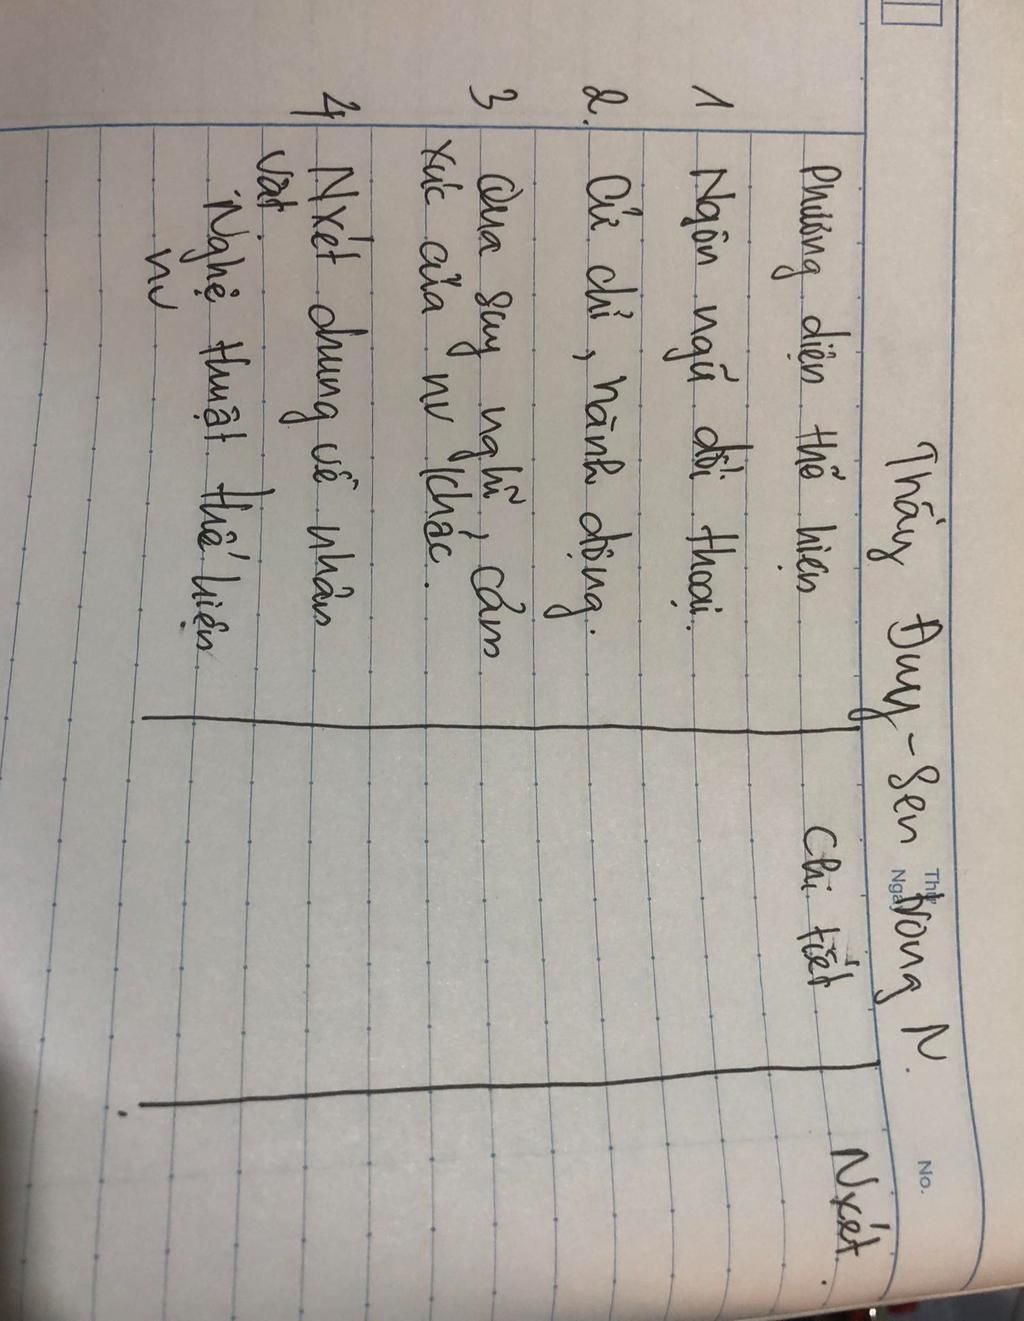 Thầy Đuy - Sen trong N.
Thứ
Ngày
No.
Phương diện thể hiện
Chi tiết
Nxét.
1 Ngôn ngữ đối thoại.
2. Cử chỉ, hành động.
3 Qua suy nghĩ, cảm
xúc của nv khác.
4 Nxét chung về nhân
vật.
Nghệ thuật thể hiện
nv